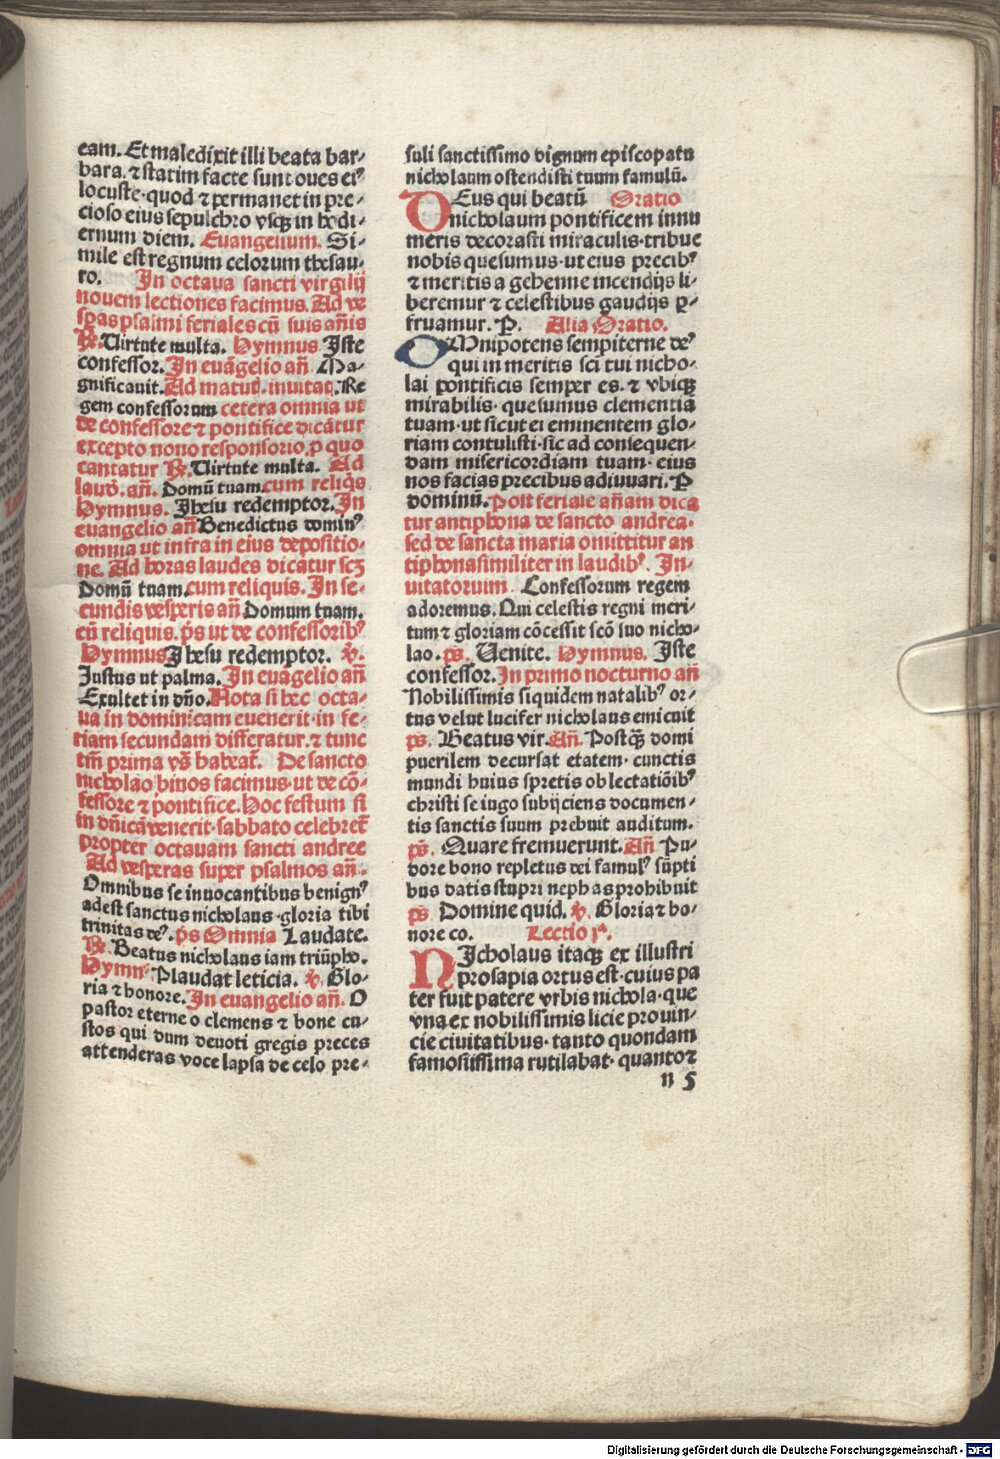 eam. Et maledixit illi beata bar-
bara. ⁊ statim facte sunt oues eiꝰ
locuste· quod ⁊ permanet in pre-
cioso eius sepulchro vsqꝫ in hodi-
ernum diem. Euangelium. Si-
mile est regnum celorum thesau-
ro. In octaua sancti virgilij
nouem lectiones facimus. Ad ve
spas psalmi feriales cū suis añis
℟. Uirtute multa. Hymnus Iste
confessor. In euāgelio añ Ma-
gnificauit. Ad matut. inuitat. Re
gem confessorum cetera omnia ut
de confessore ⁊ pontifice dicātur
excepto nono responsorio. ꝓ quo
cantatur ℟. Uirtute multa. Ad
laud. añ. Domū tuam. cum reliq̄s
Hymnus. Jhesu redemptor. In
euangelio añ Benedictus dominꝰ
omnia ut infra in eius depositio-
ne. Ad horas laudes dicatur scꝫ
Domū tuam. cum reliquis. In se-
cundis vesperis añ Domum tuam.
cū reliquis. ps ut de confessoribꝰ
Hymnus Jhesu redemptor. ℣.
Justus ut palma. In euāgelio añ
Exultet in dño. Nota si hec octa-
ua in dominicam euenerit· in fe-
riam secundam differatur. ⁊ tunc
tm̄ prima vs̄ habeat. De sancto
nicholao binos facimus· ut de cō-
fessore ⁊ pontifice. Hoc festum si
in dñica venerit· sabbato celebret̄
propter octauam sancti andree
Ad vesperas super psalmos añ.
Omnibus se inuocantibus benignꝰ
adest sanctus nicholaus· gloria tibi
trinitas deꝰ. ps Omnia Laudate.
℟. Beatus nicholaus iam triūpho.
Hymnꝰ Plaudat leticia. ℣ Glo-
ria ⁊ honore. In euangelio añ. O
pastor eterne o clemens ⁊ bone cu-
stos qui dum deuoti gregis preces
attenderas voce lapsa de celo pre-
suli sanctissimo dignum episcopatu
nicholaum ostendisti tuum famulū.
DEus qui beatū Oratio
nicholaum pontificem innu
meris decorasti miraculis· tribue
nobis quesumus· ut eius precibꝰ
⁊ meritis a gehenne incendijs li-
beremur ⁊ celestibus gaudijs ꝑ-
fruamur. P. Alia Oratio.
OMnipotens sempiterne deꝰ
qui in meritis sci tui nicho-
lai pontificis semper es. ⁊ vbiqꝫ
mirabilis· quesumus clementiā
tuam· ut sicut ei eminentem glo-
riam contulisti· sic ad consequen-
dam misericordiam tuam· eius
nos facias precibus adiuuari. P
dominū. Post feriale añam dica
tur antiphona de sancto andrea·
sed de sancta maria omittitur an
tiphona similiter in laudibꝰ. In-
uitatorium. Confessorum regem
adoremus. Qui celestis regni meri-
tum ⁊ gloriam cōcessit scō suo nicho-
lao. ps. Uenite. Hymnus. Iste
confessor. In primo nocturno añ
Nobilissimis siquidem natalibꝰ or-
tus velut lucifer nicholaus emicuit
ps. Beatus vir. Añ. Postqꝫ domi
puerilem decursat etatem· cunctis
mundi huius spretis oblectatiōibꝰ
christi se iugo subijciens documen-
tis sanctis suum prebuit auditum.
ps. Quare fremuerunt. Añ Pu-
dore bono repletus dei famulꝰ sūpti
bus datis stupri nephas prohibuit
ps Domine quid. ℣. Gloria ⁊ ho-
nore co. Lectio jᵃ.
NIcholaus itaqꝫ ex illustri
prosapia ortus est· cuius pa
ter fuit patere vrbis nichola· que
vna ex nobilissimis licie prouin-
cie ciuitatibus· tanto quondam
famosissima rutilabat· quanto ⁊
n 5
Digitalisierung gefördert durch die Deutsche Forschungsgemeinschaft - DFG